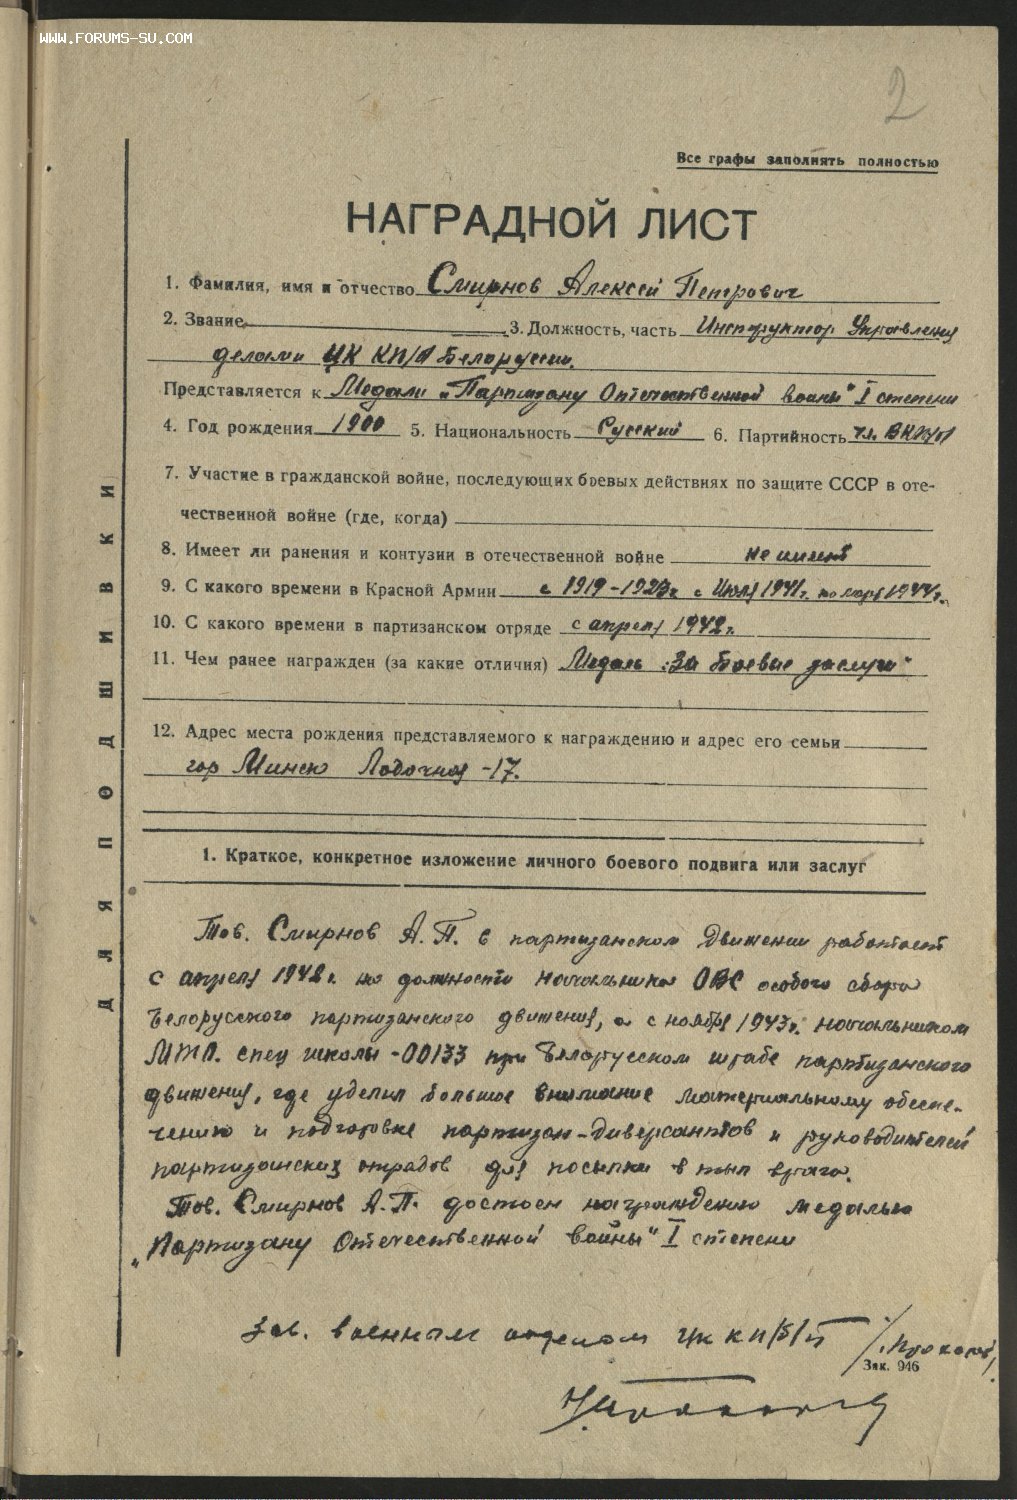 WWW.FORUMS-SU.COM
2
Все графы заполнять полностью
НАГРАДНОЙ ЛИСТ
1. Фамилия, имя и отчество Смирнов Алексей Петрович
2. Звание 3. Должность, часть Инструктор Управления
делами ЦК КП/б Белоруссии.
Представляется к Медали „Партизану Отечественной войны" I степени
4. Год рождения 1900 5. Национальность Русский 6. Партийность чл. ВКП/б/
7. Участие в гражданской войне, последующих боевых действиях по защите СССР в оте-
чественной войне (где, когда)
8. Имеет ли ранения и контузии в отечественной войне не имеет
9. С какого времени в Красной Армии с 1919-1923г. с Июля 1941г. по март 1944г.
10. С какого времени в партизанском отряде с апреля 1942г.
11. Чем ранее награжден (за какие отличия) Медаль „За боевые заслуги"
12. Адрес места рождения представляемого к награждению и адрес его семьи
гор Минск Лодочная -17.
1. Краткое, конкретное изложение личного боевого подвига или заслуг
Тов. Смирнов А. П. в партизанском движении работает
с апреля 1942г. на должности начальника ОВС особого сбора
Белорусского партизанского движения, а с ноября 1943г. начальником
МТО. спец школы -00133 при Белорусском штабе партизанского
движения, где уделил большое внимание материальному обеспе-
чению и подготовке партизан-диверсантов и руководителей
партизанских отрядов для посылки в тыл врага.
Тов. Смирнов А. П. достоен награждению медалью
„Партизану Отечественной войны" I степени
Зав. военным отделом ЦК КП/б/Б
Зак. 946
ДЛЯ ПОДШИВКИ